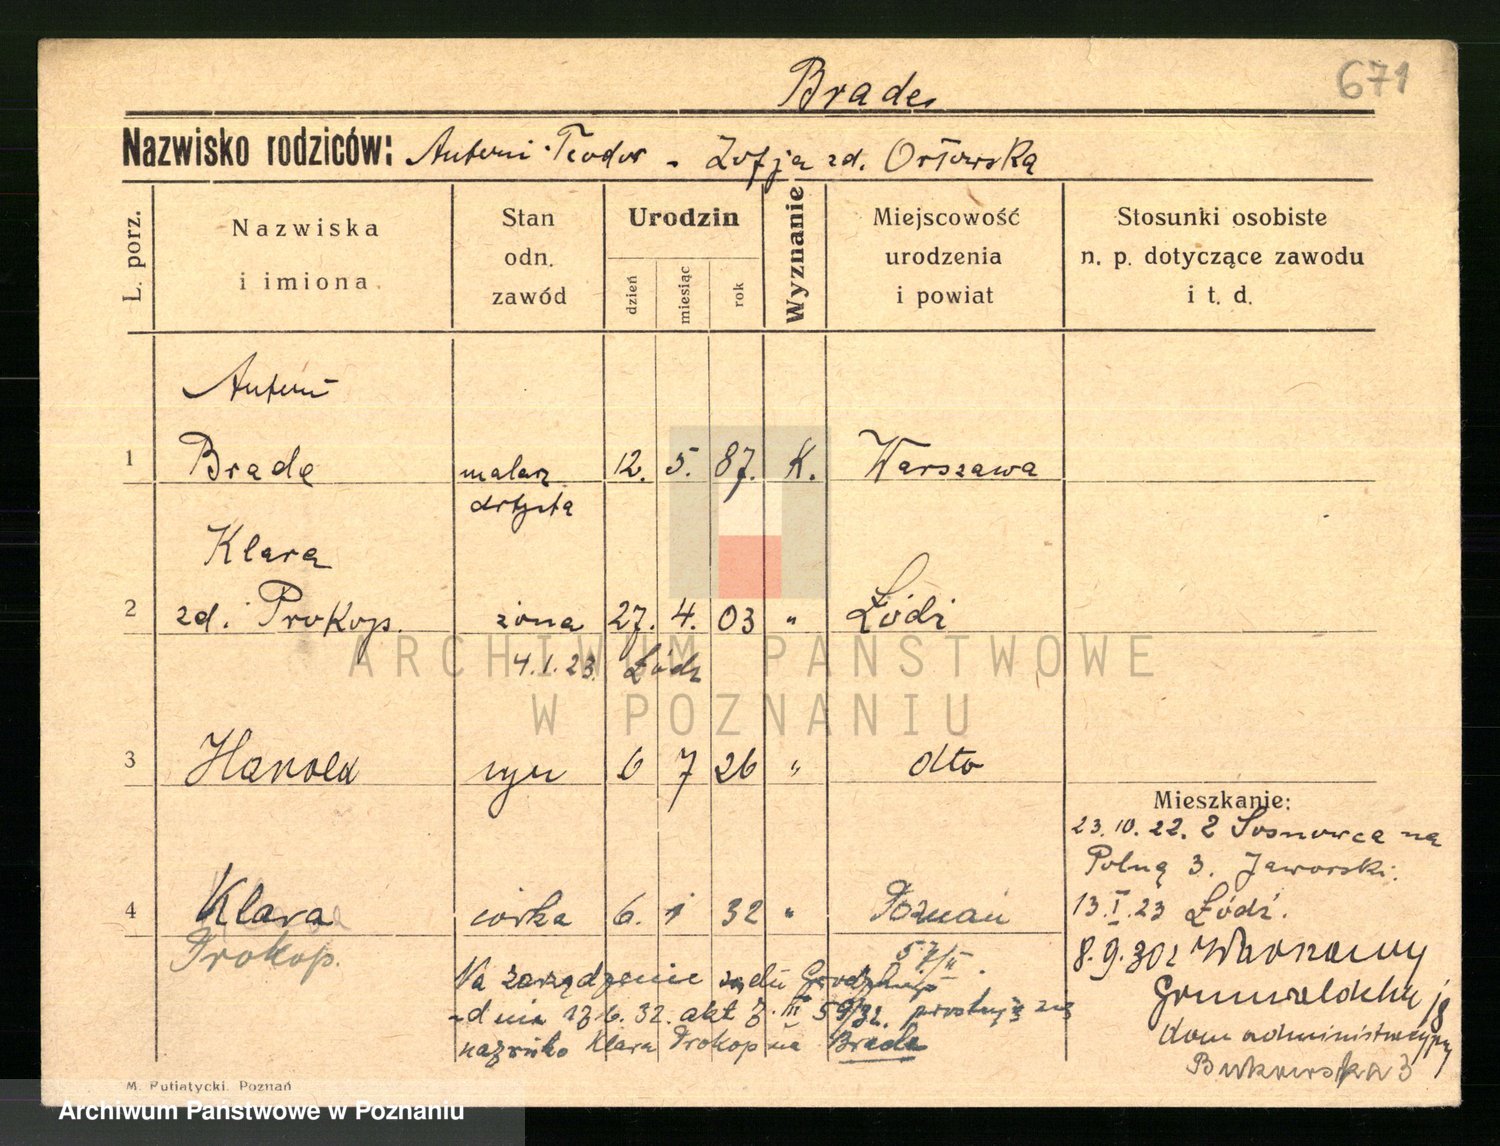 671
Brade
Nazwisko rodziców: Antoni Teodor - Zofja zd. Orłowska
L. porz.
Nazwiska
i imiona
Stan
odn.
zawód
Urodzin
dzień
miesiąc
rok
Wyznanie
Miejscowość
urodzenia
i powiat
Stosunki osobiste
n. p. dotyczące zawodu
i t. d.
Antoni
1 Brade malarz 12. 5. 87. K. Warszawa
artysta
Klara
2 zd. Prokop. żona 27. 4. 03 " Łódź
4.1.23. Łódź
3 Harold syn 6 7 26 " dto
Mieszkanie:
23.10.22. z Sosnowca na
Polną 3. Jaworski.
4 Klara córka 6. 1 32 " Poznań
13.I.23 Łódź.
Prokop.
57/II.
8.9.30 z Warszawy
Na zarządzenie sądu
z dnia 13 6. 32. akt 3. III 59/32.
nazwisko Klara Prokop na Brade
dom administracyjny
Bukowska 3
M. Putiatycki. Poznań
ARCHIWUM PAŃSTWOWE
W POZNANIU
Archiwum Państwowe w Poznaniu